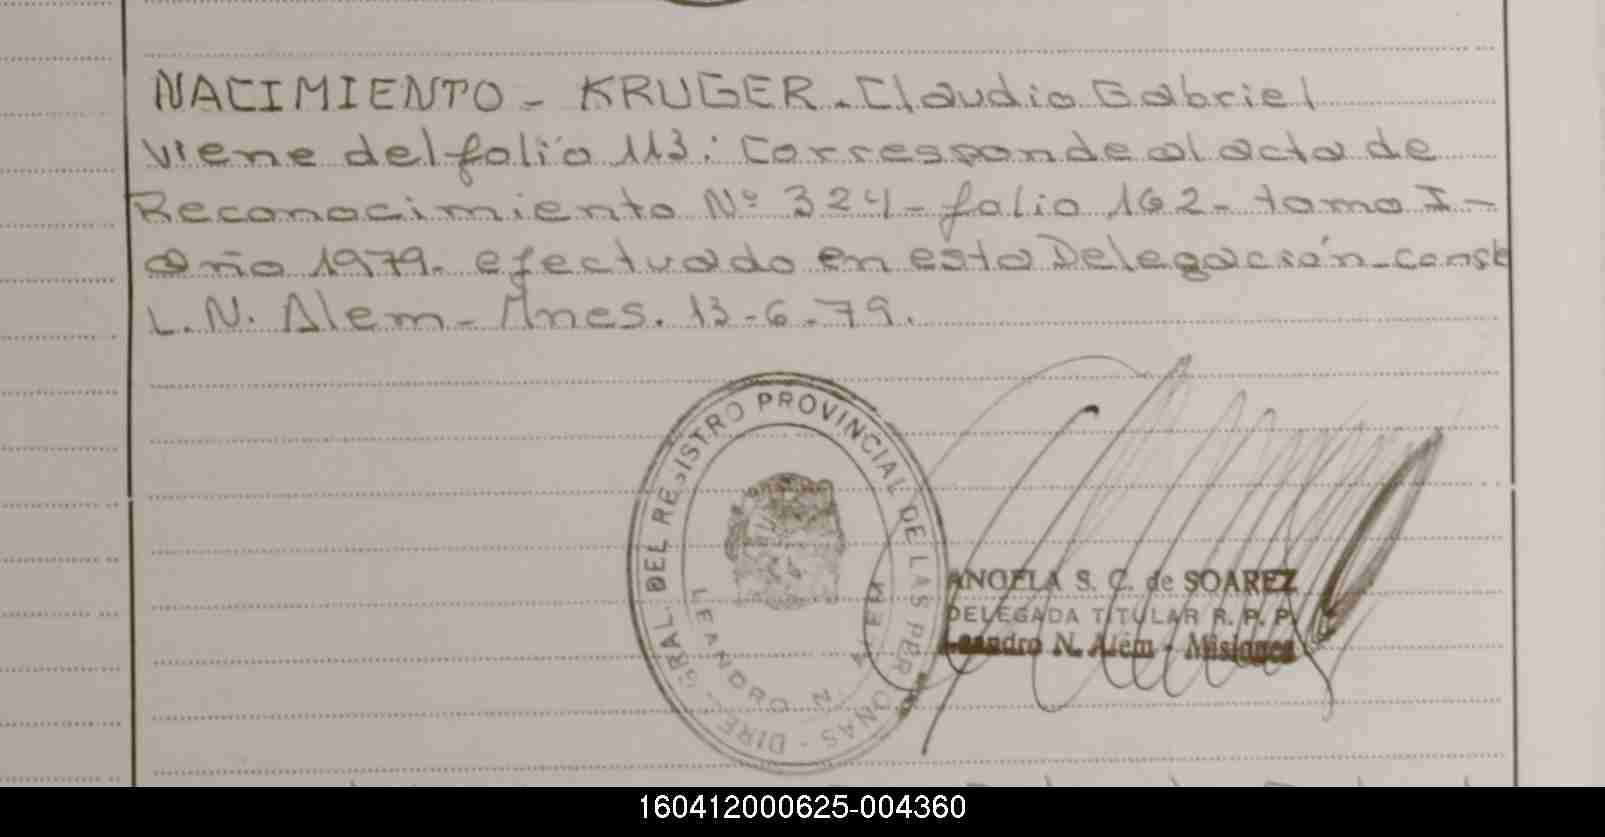 NACIMIENTO - KRUGER. Claudio Gabriel
Viene del folio 113: Corresponde al acta de
Reconocimiento Nº 324 - folio 162 - tomo I -
año 1979. efectuado en esta Delegación - conste
L. N. Alem - Mnes. 13-6-79.
DIRE. GRAL DEL REGISTRO PROVINCIAL DE LAS PERSONAS
LEANDRO N. ALEM
ANGELA S. C. de SOAREZ
DELEGADA TITULAR R. P. P.
Leandro N. Alem - Misiones
160412000625-004360